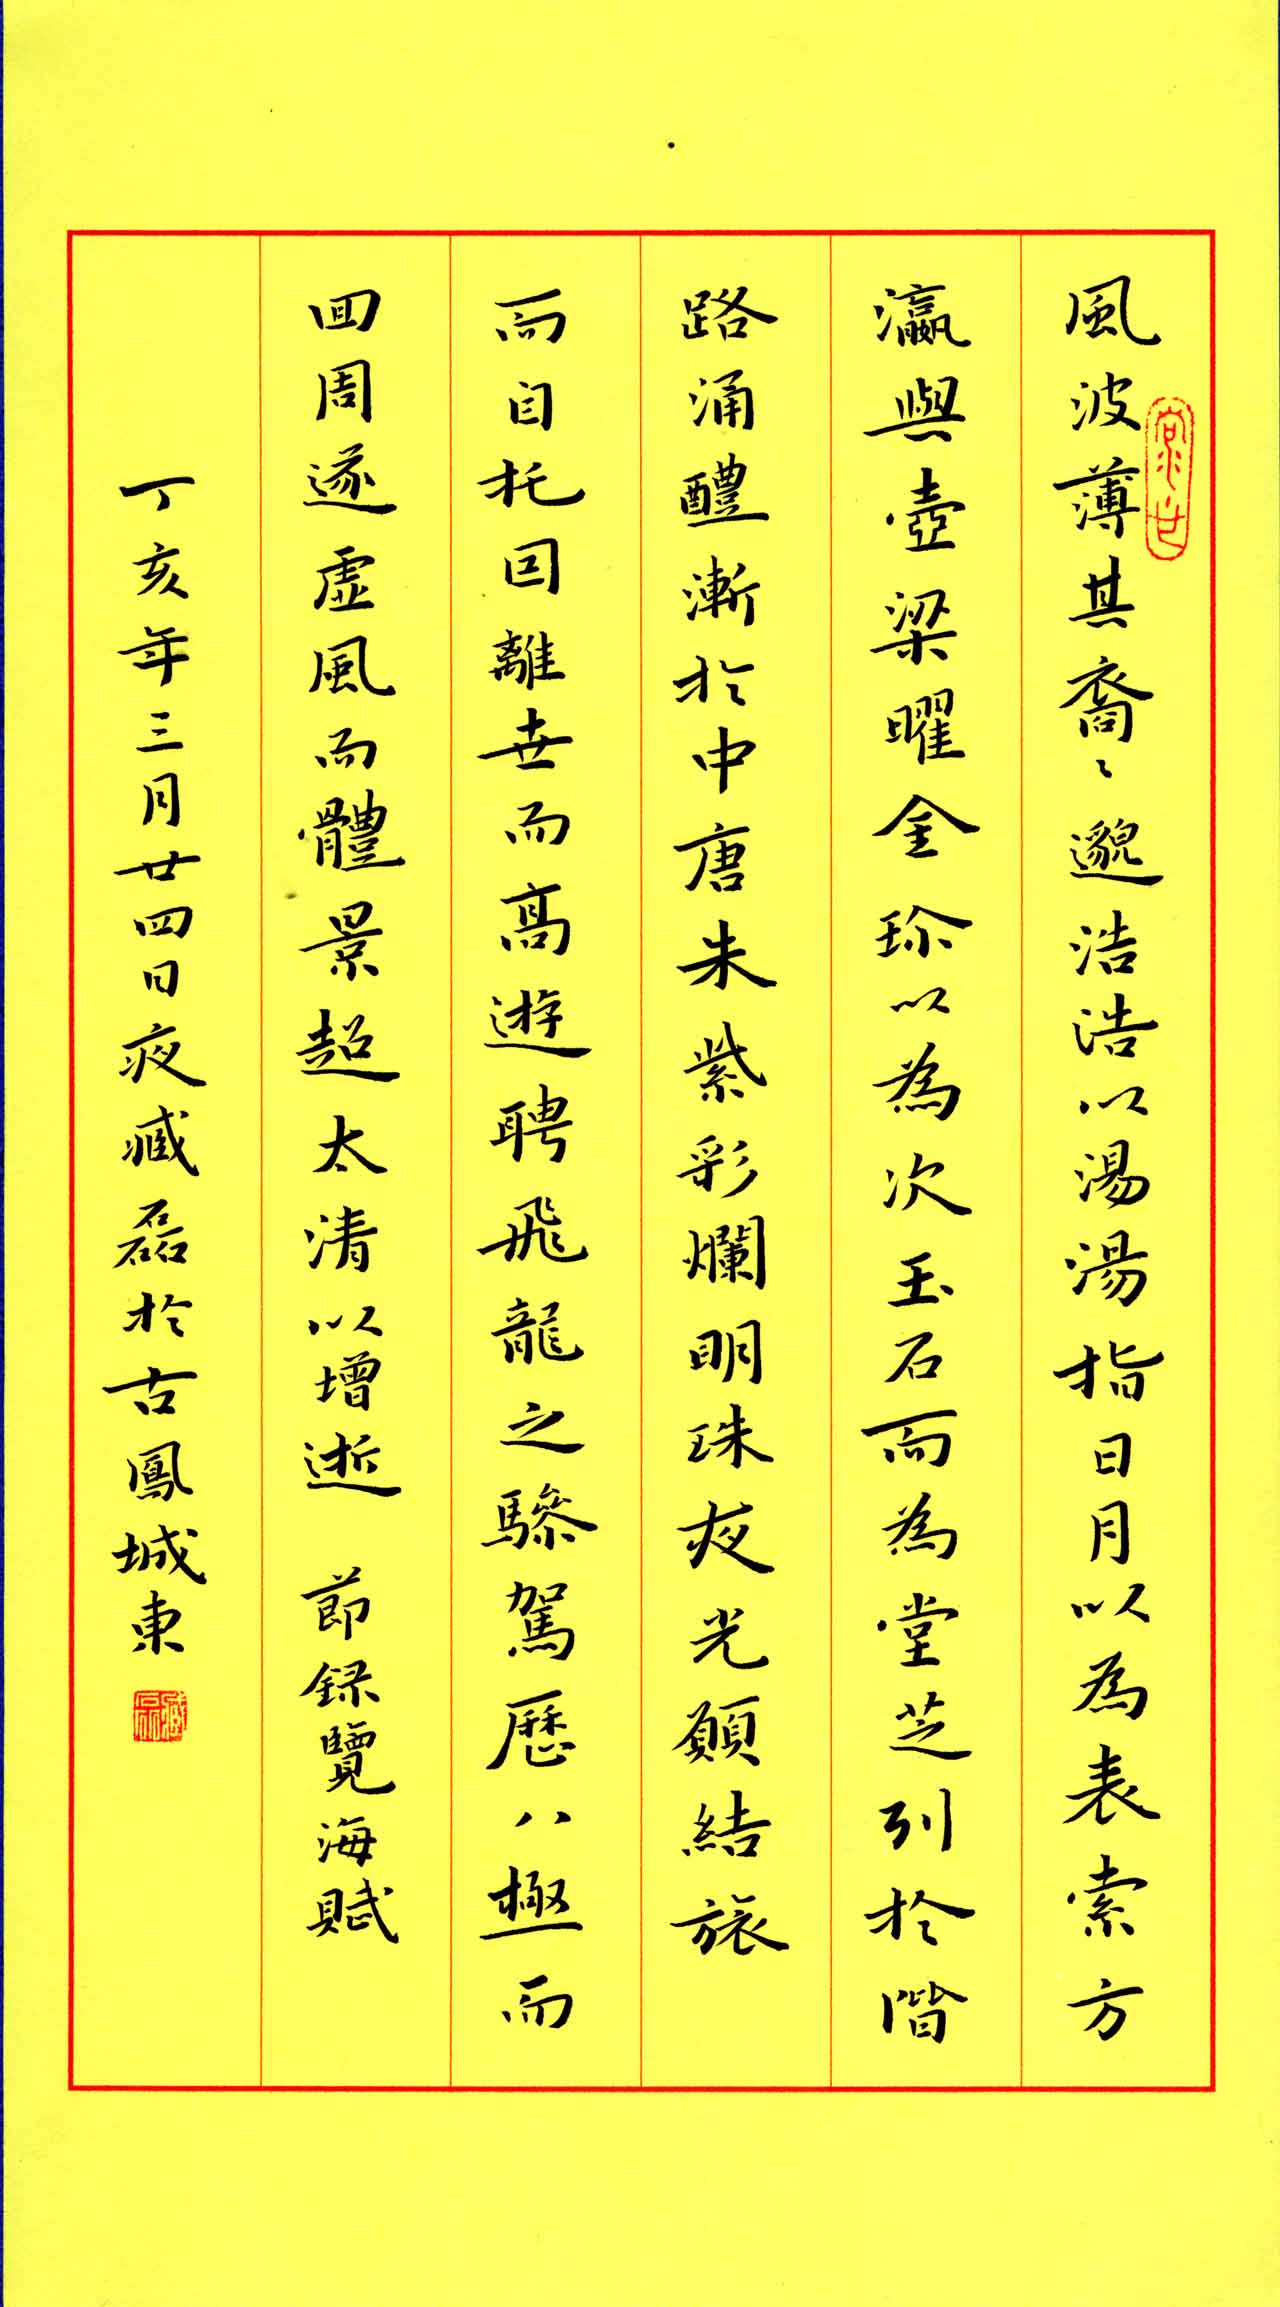 風波薄其裔裔邈浩浩以湯湯指日月以為表索方
瀛與壺梁曜金珎以為次玉石而為堂芝列於階
路涌醴漸於中唐朱紫彩爛明珠夜光願結旅
而自托因離世而高遊聘飛龍之驂駕歷八極而
回周遂虛風而體景超太清以增逝 節録覽海賦
丁亥年三月廿四日夜臧磊於古鳳城東